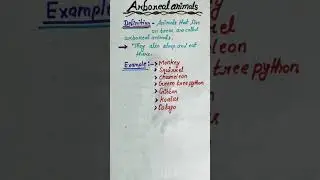 Arboreal animals
Definition - Animals that live
on trees are called
arboreal animals.
→ They also sleep and eat
there.
Example :→ Monkey
> Squirrel
> Chameleon
> Green tree python
> Gibbon
> Koalas